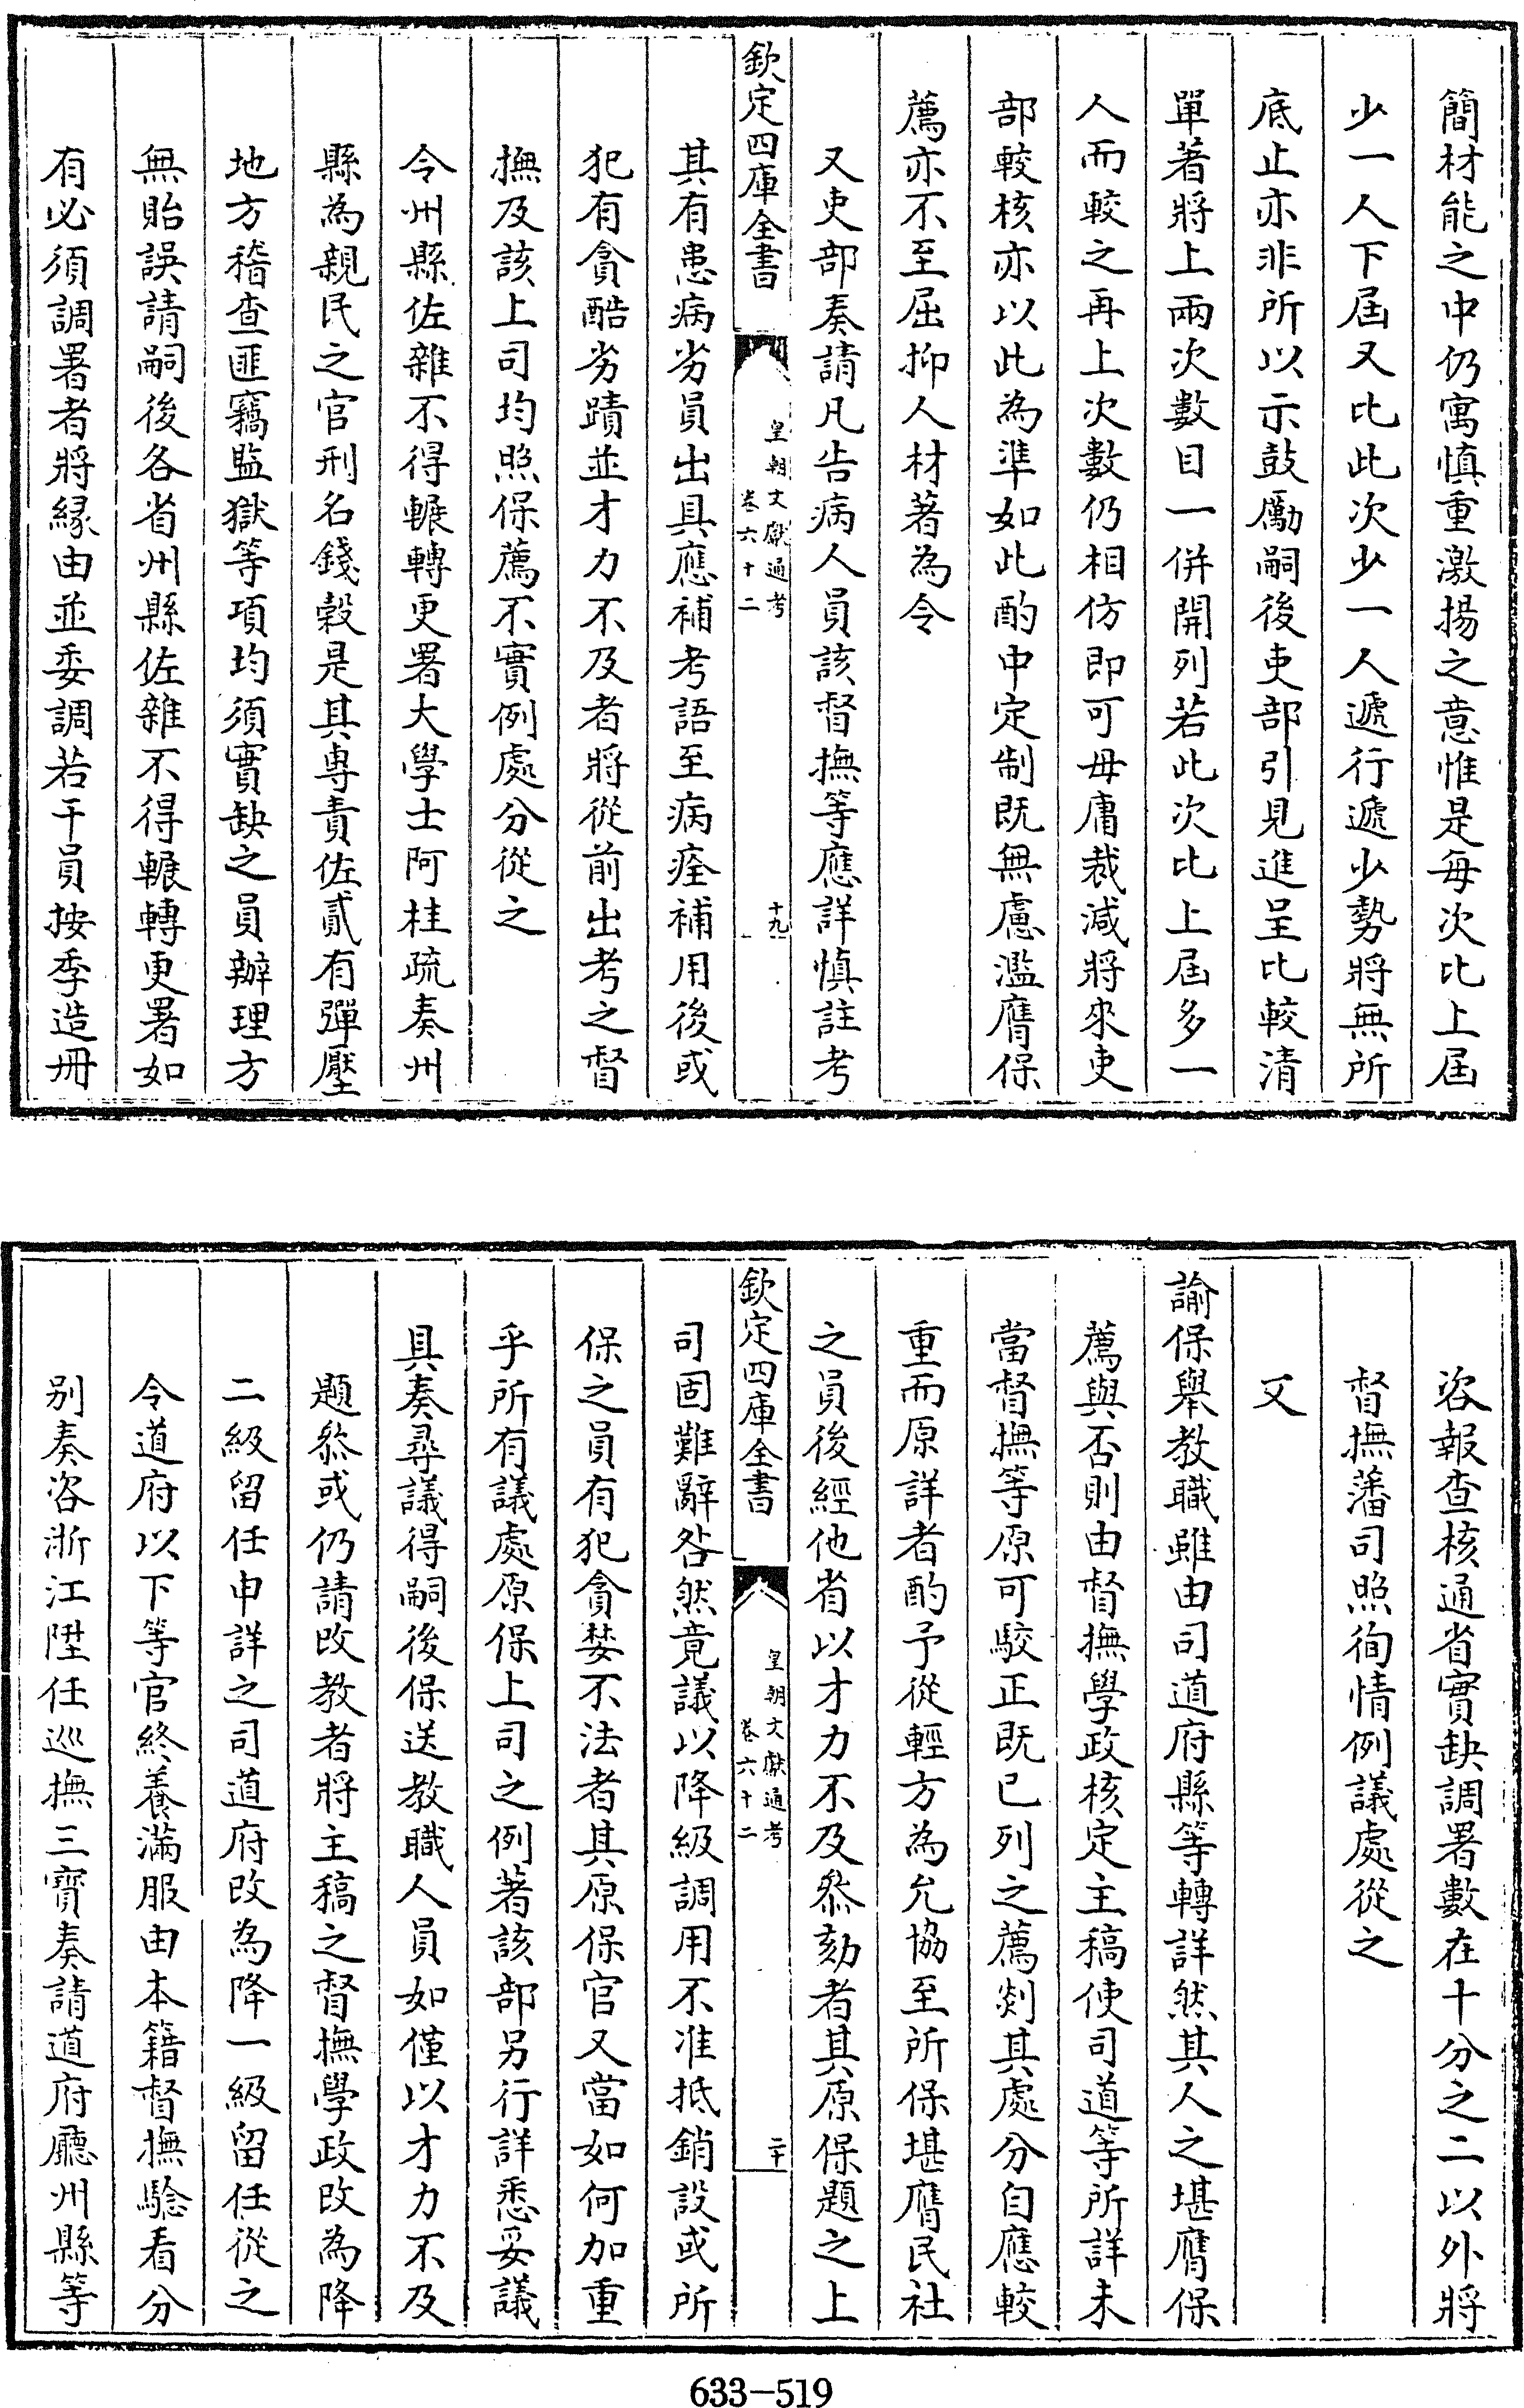 簡材能之中仍寓慎重激揚之意惟是每次比上屆
少一人下屆又比此次少一人遞行遞少勢將無所
底止亦非所以示鼓勵嗣後吏部引見進呈比較清
單著將上兩次數目一併開列若此次比上屆多一
人而較之再上次數仍相仿即可毋庸裁減將來吏
部較核亦以此為準如此酌中定制既無慮濫膺保
薦亦不至屈抑人材著為令
又吏部奏請凡告病人員該督撫等應詳慎註考
欽定四庫全書
皇朝文獻通考
卷六十二
十九
其有患病劣員出具應補考語至病痊補用後或
犯有貪酷劣蹟並才力不及者將從前出考之督
撫及該上司均照保薦不實例處分從之
令州縣佐雜不得輾轉更署大學士阿桂疏奏州
縣為親民之官刑名錢穀是其專責佐貳有彈壓
地方稽查匪竊監獄等項均須實缺之員辦理方
無貽誤請嗣後各省州縣佐雜不得輾轉更署如
有必須調署者將緣由並委調若干員按季造冊
咨報查核通省實缺調署數在十分之二以外將
督撫藩司照徇情例議處從之
又
諭保舉教職雖由司道府縣等轉詳然其人之堪膺保
薦與否則由督撫學政核定主稿使司道等所詳未
當督撫等原可駮正既已列之薦剡其處分自應較
重而原詳者酌予從輕方為允協至所保堪膺民社
之員後經他省以才力不及叅劾者其原保題之上
欽定四庫全書
皇朝文獻通考
卷六十二
二十
司固難辭咎然竟議以降級調用不准抵銷設或所
保之員有犯貪婪不法者其原保官又當如何加重
乎所有議處原保上司之例著該部另行詳悉妥議
具奏尋議得嗣後保送教職人員如僅以才力不及
題叅或仍請改教者將主稿之督撫學政改為降
二級留任申詳之司道府改為降一級留任從之
令道府以下等官終養滿服由本籍督撫驗看分
别奏咨浙江陞任巡撫三寶奏請道府廳州縣等
633-519